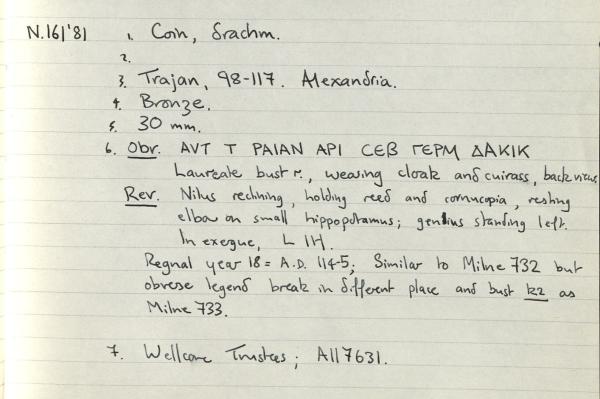 N.161'81 1. Coin, drachm.
2.
3. Trajan, 98-117. Alexandria.
4. Bronze.
5. 30 mm.
6. Obv. ΑVΤ Τ ΡΑΙΑΝ ΑΡΙ СЄΒ ΓЄΡΜ ΔΑΚΙΚ
Laureate bust r., wearing cloak and cuirass, back view
Rev. Nilus reclining, holding reed and cornucopia, resting
elbow on small hippopotamus; genius standing left.
In exergue, L IH.
Regnal year 18 = A.D. 114-5; Similar to Milne 732 but
obverse legend break in different place and bust k2 as
Milne 733.
7. Wellcome Trustees; A117631.